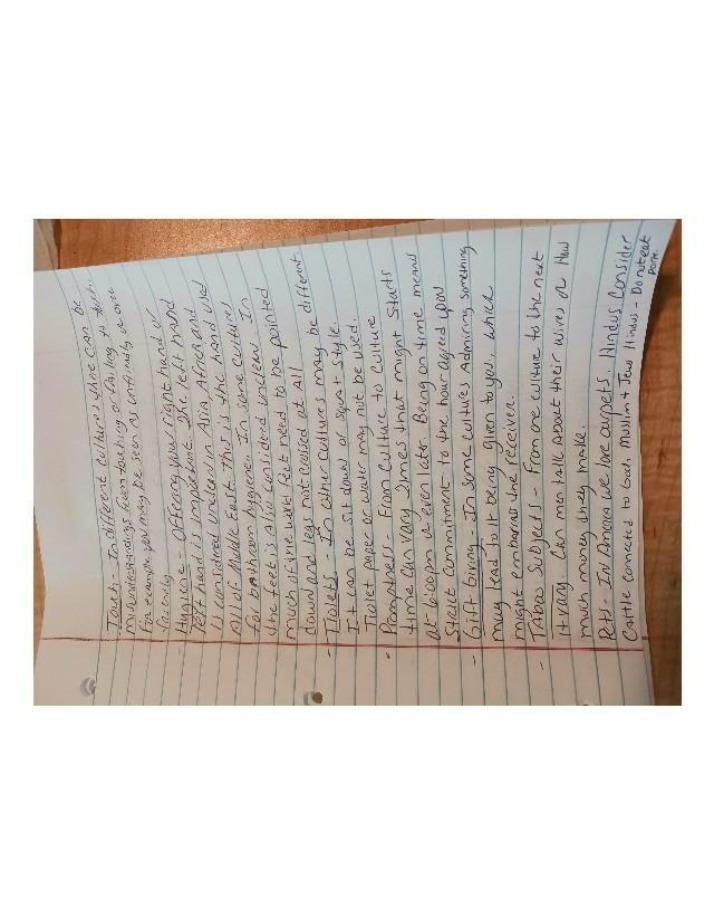 Touch - In different cultures there can be
misunderstandings from touching or failing to touch.
For example you may be seen as unfriendly or over
friendly
- Hygiene - Offering your right hand or
left hand is important. The left hand
is considered unclean in Asia, Africa and
All of Middle East. This is the hand used
for bathroom hygiene. In some cultures
the feet is also considered unclean. In
much of the world feet need to be pointed
down and legs not crossed at All
- Tiolets - In other cultures may be different
It can be sit down or squat style.
Tiolet paper or water may not be used.
- Promptness - From culture to culture
time can vary times that might starts
at 6:00pm or even later. Being on time means
strict commitment to the hour agreed upon
- Gift Giving - In some cultures Admiring something
may lead to it being given to you, which
might embarrass the receiver.
- Taboo Subjects - From one culture to the next
It vary Can men talk about their wives or How
much money they make.
Pets - In America we love our pets. Hindus Consider
Cattle connected to God, Muslim + Jews Hindus - Do not eat
pork.